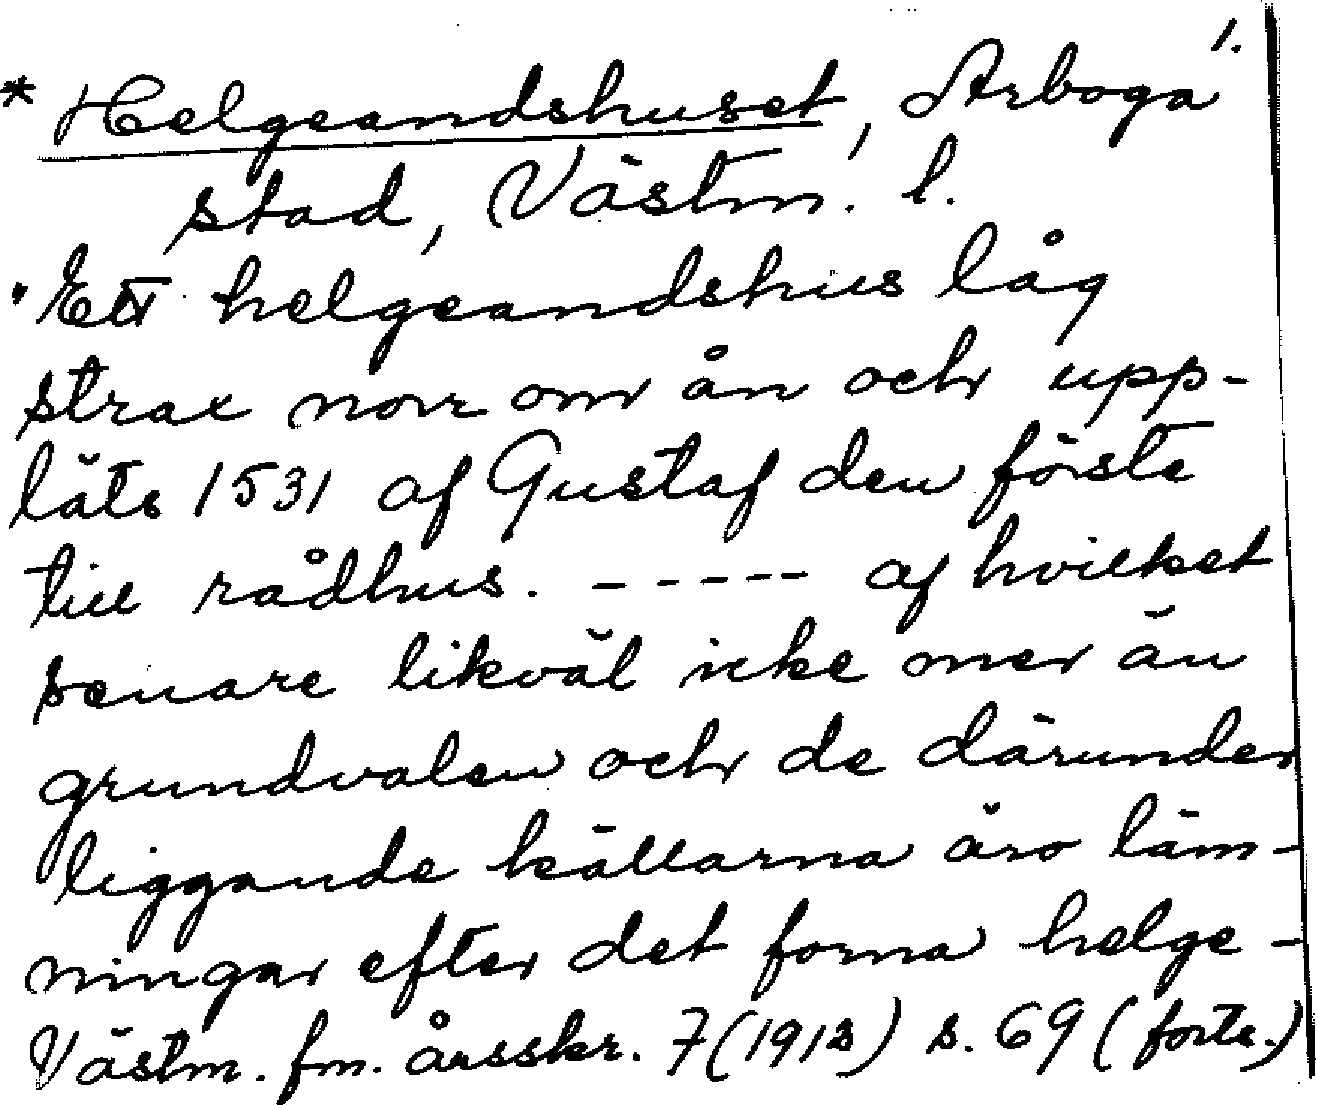 1.
* Helgeandshuset, Arboga
stad, Västm. l.
"Ett helgeandshus låg
strax norr om ån och upp-
läts 1531 af Gustaf den förste
till rådhus. ----- af hvilket
senare likväl icke mer än
grundvalen och de därunder
liggande källarna äro läm-
ningar efter det forna helge-
Västm. fm. årsskr. 7 (1913) s. 69 (forts.)